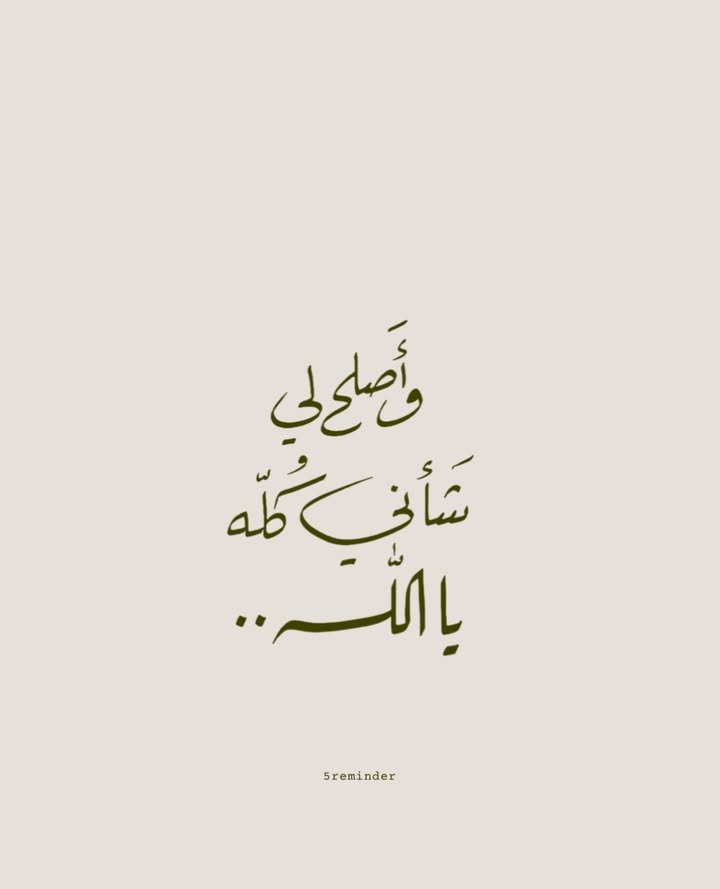 وَأَصلح لي
شَأني كُلّه
يا اللّٰه..
5reminder